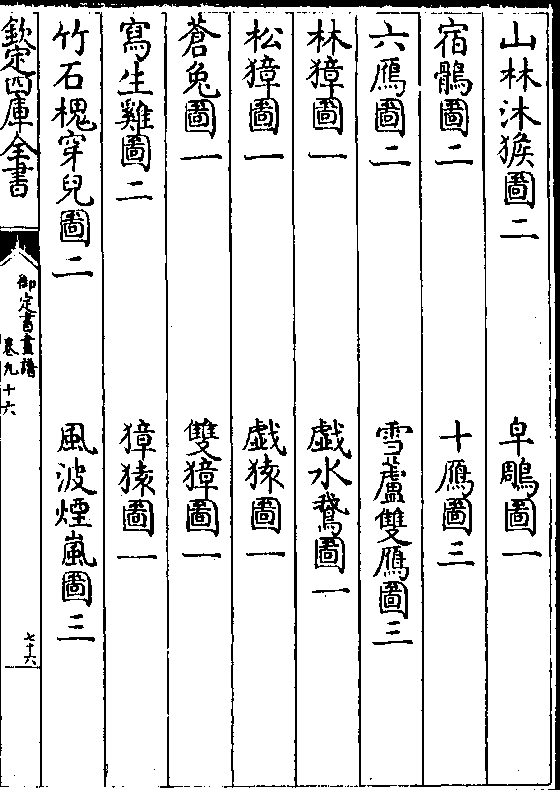 山林沐猴圖二　皁鵰圖一
宿鶻圖二　十鴈圖三
六鴈圖二　雪蘆雙鴈圖三
林獐圖一　戯水鵞圖一
松獐圖一　戯猿圖一
蒼兔圖一　雙獐圖一
寫生雞圖二　獐猿圖一
竹石槐穿兒圖二　風波煙嵐圖三
欽定四庫全書　御定書畫譜　卷九十六　七十六